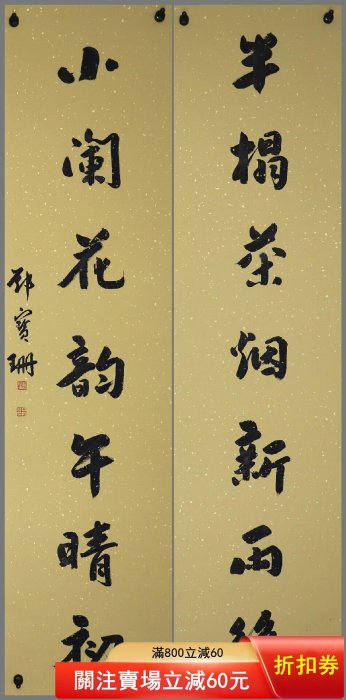 半榻茶烟新雨後
小阑花韵午晴初
邓寶珊
滿800立減60
關注賣場立減60元
折扣券